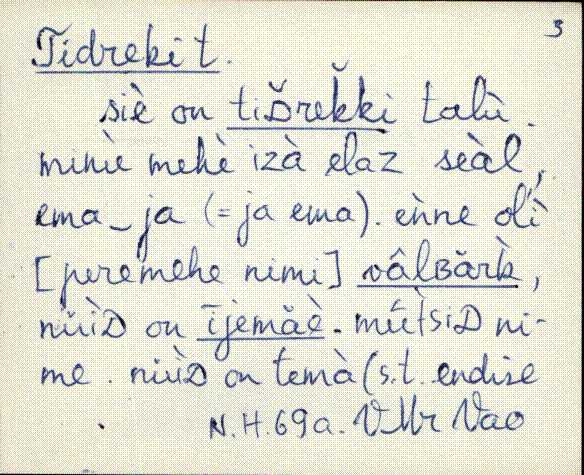 3
Tidrekit.
siè on tiDrĕk̆ki talù.
minù mehè izà elaz seàl,
ema_ja (= ja ema). eǹne olì
[peremehe nimi] vâlʙărk̀,
nǜiD on ījemäè. mǘtsiD ni-
me. nǜiD on temà (s.t. endise
N.H. 69a. VMr Vao